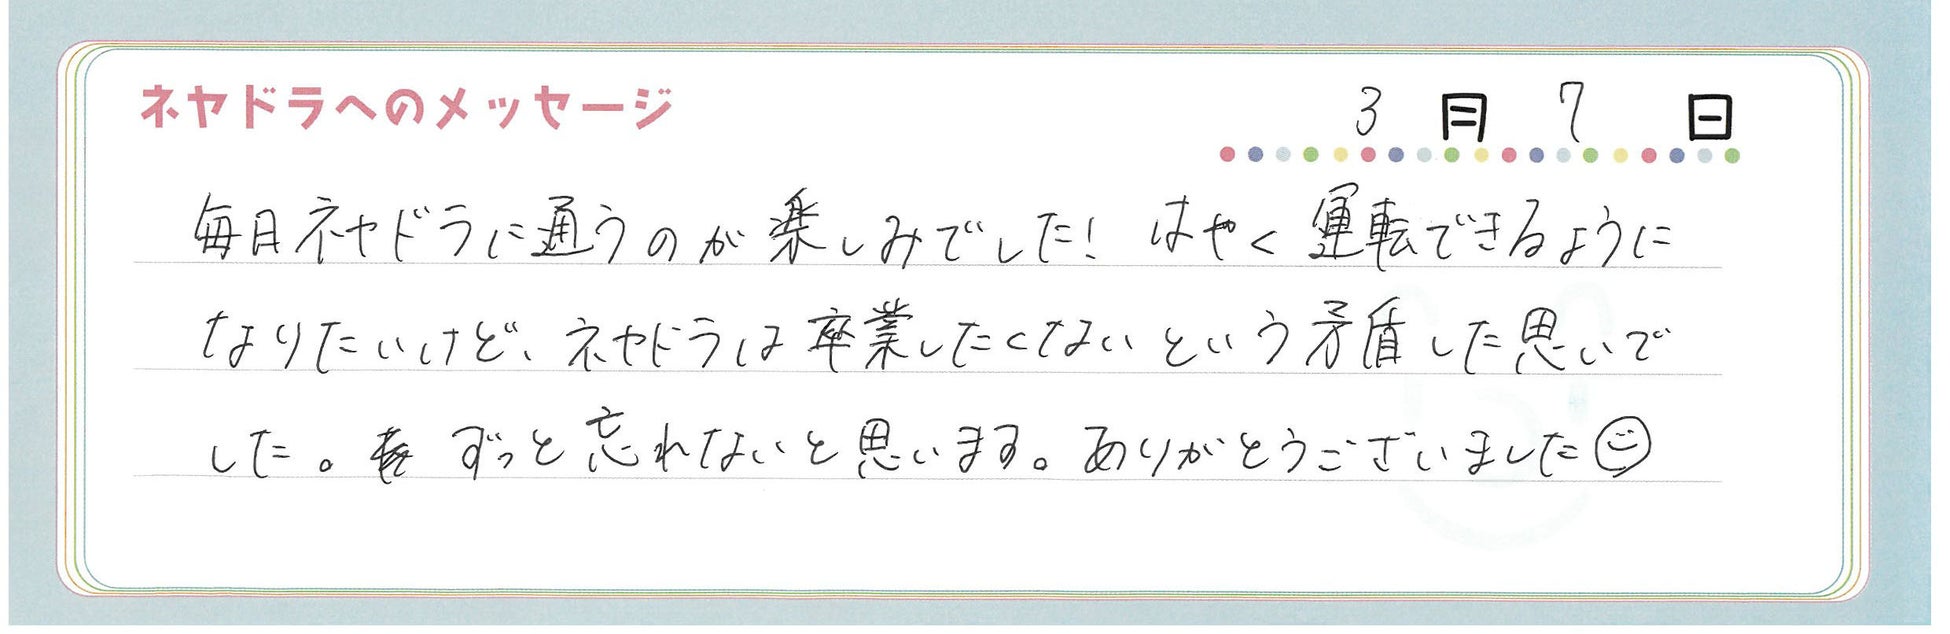 ネヤドラへのメッセージ
3月7日
毎日ネヤドラに通うのが楽しみでした! はやく運転できるように
なりたいけど、ネヤドラは卒業したくないという矛盾した思いで
した。ずっと忘れないと思います。ありがとうございました